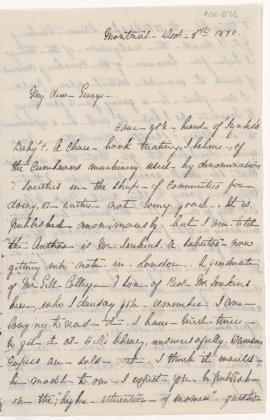 Montreal - Dec - 8th 1870.
My dear George -
Have you heard of Ginx's
Baby? A clever book treating, I believe, of
the Cumbrous machinery used by denominations
& societies in the shape of Committees for
doing, or rather not doing good. It is
published anonymously but I am told
the Author is Mr Jenkins. A barrister now
getting into note in London. A graduate
of McGill College & son of Revd Mr Jenkins
here, who I dare say you remember. I am
longing to read it. I have tried twice
to get it at Hill's library, unsuccessfully.
copies are sold. I think it would
be useful to one I expect you to publish
on the "higher education of women" question